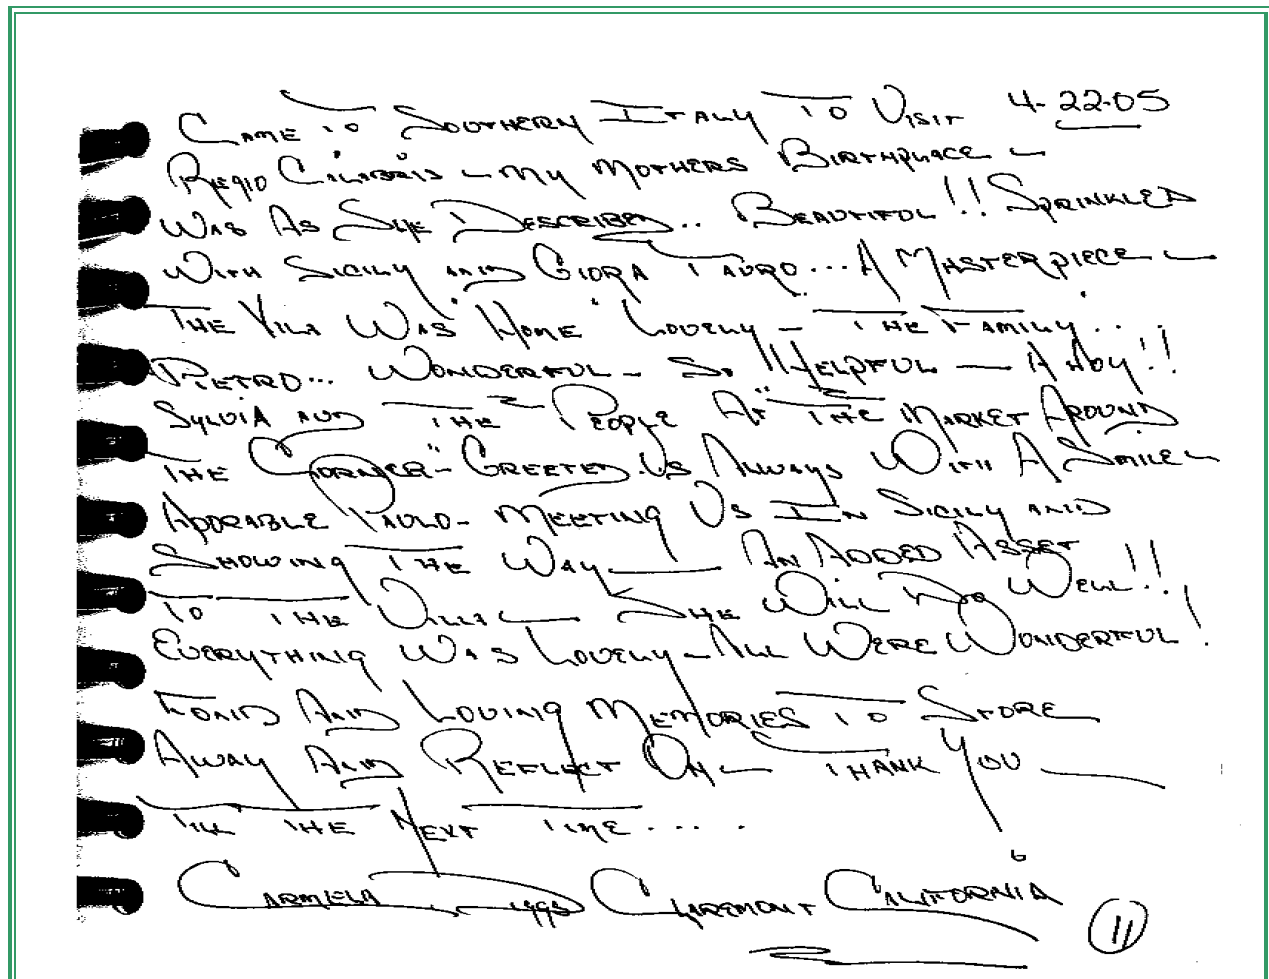 Came to Southern Italy to Visit 4-22-05
Regio Calabris – my mothers Birthplace –
Was As She Described.. Beautiful!! Sprinkled
With Sicily and Giora Tauro... A Masterpiece –
The Villa Was "Home" Lovely – The Family...
Pietro... Wonderful – So Helpful — A Joy!!
Sylvia and The People At "The Market Around
The Corner" – Greeted Us Always With A Smile –
Adorable Paulo – Meeting Us In Sicily and
Showing The Way — An Added Asset
To The Villa — She Will Do Well!!
Everything Was Lovely – All Were Wonderful!
Fond And Loving Memories To Store
Away And Reflect On – Thank You —
Till The Next Time.....
Carmela Claremont California
11